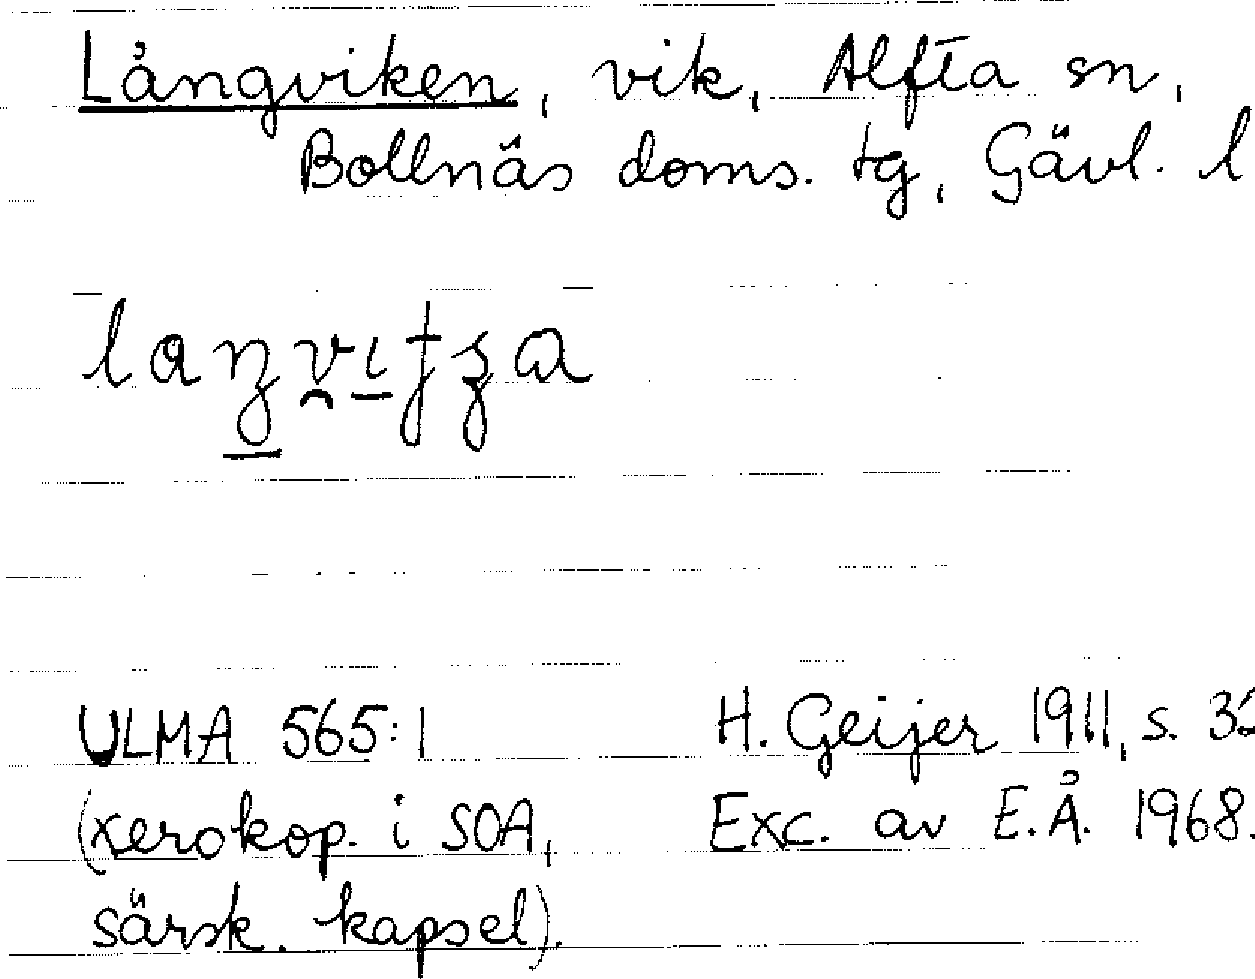 Långviken, vik, Alfta sn,
Bollnäs doms. tg, Gävl. l
ULMA 565:1
H. Geijer 1911, s. 32
(xerokop. i SOA,
Exc. av E.Å. 1968.
särsk. kapsel).